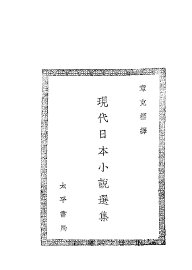 章克標譯
現代日本小說選集
太平書局